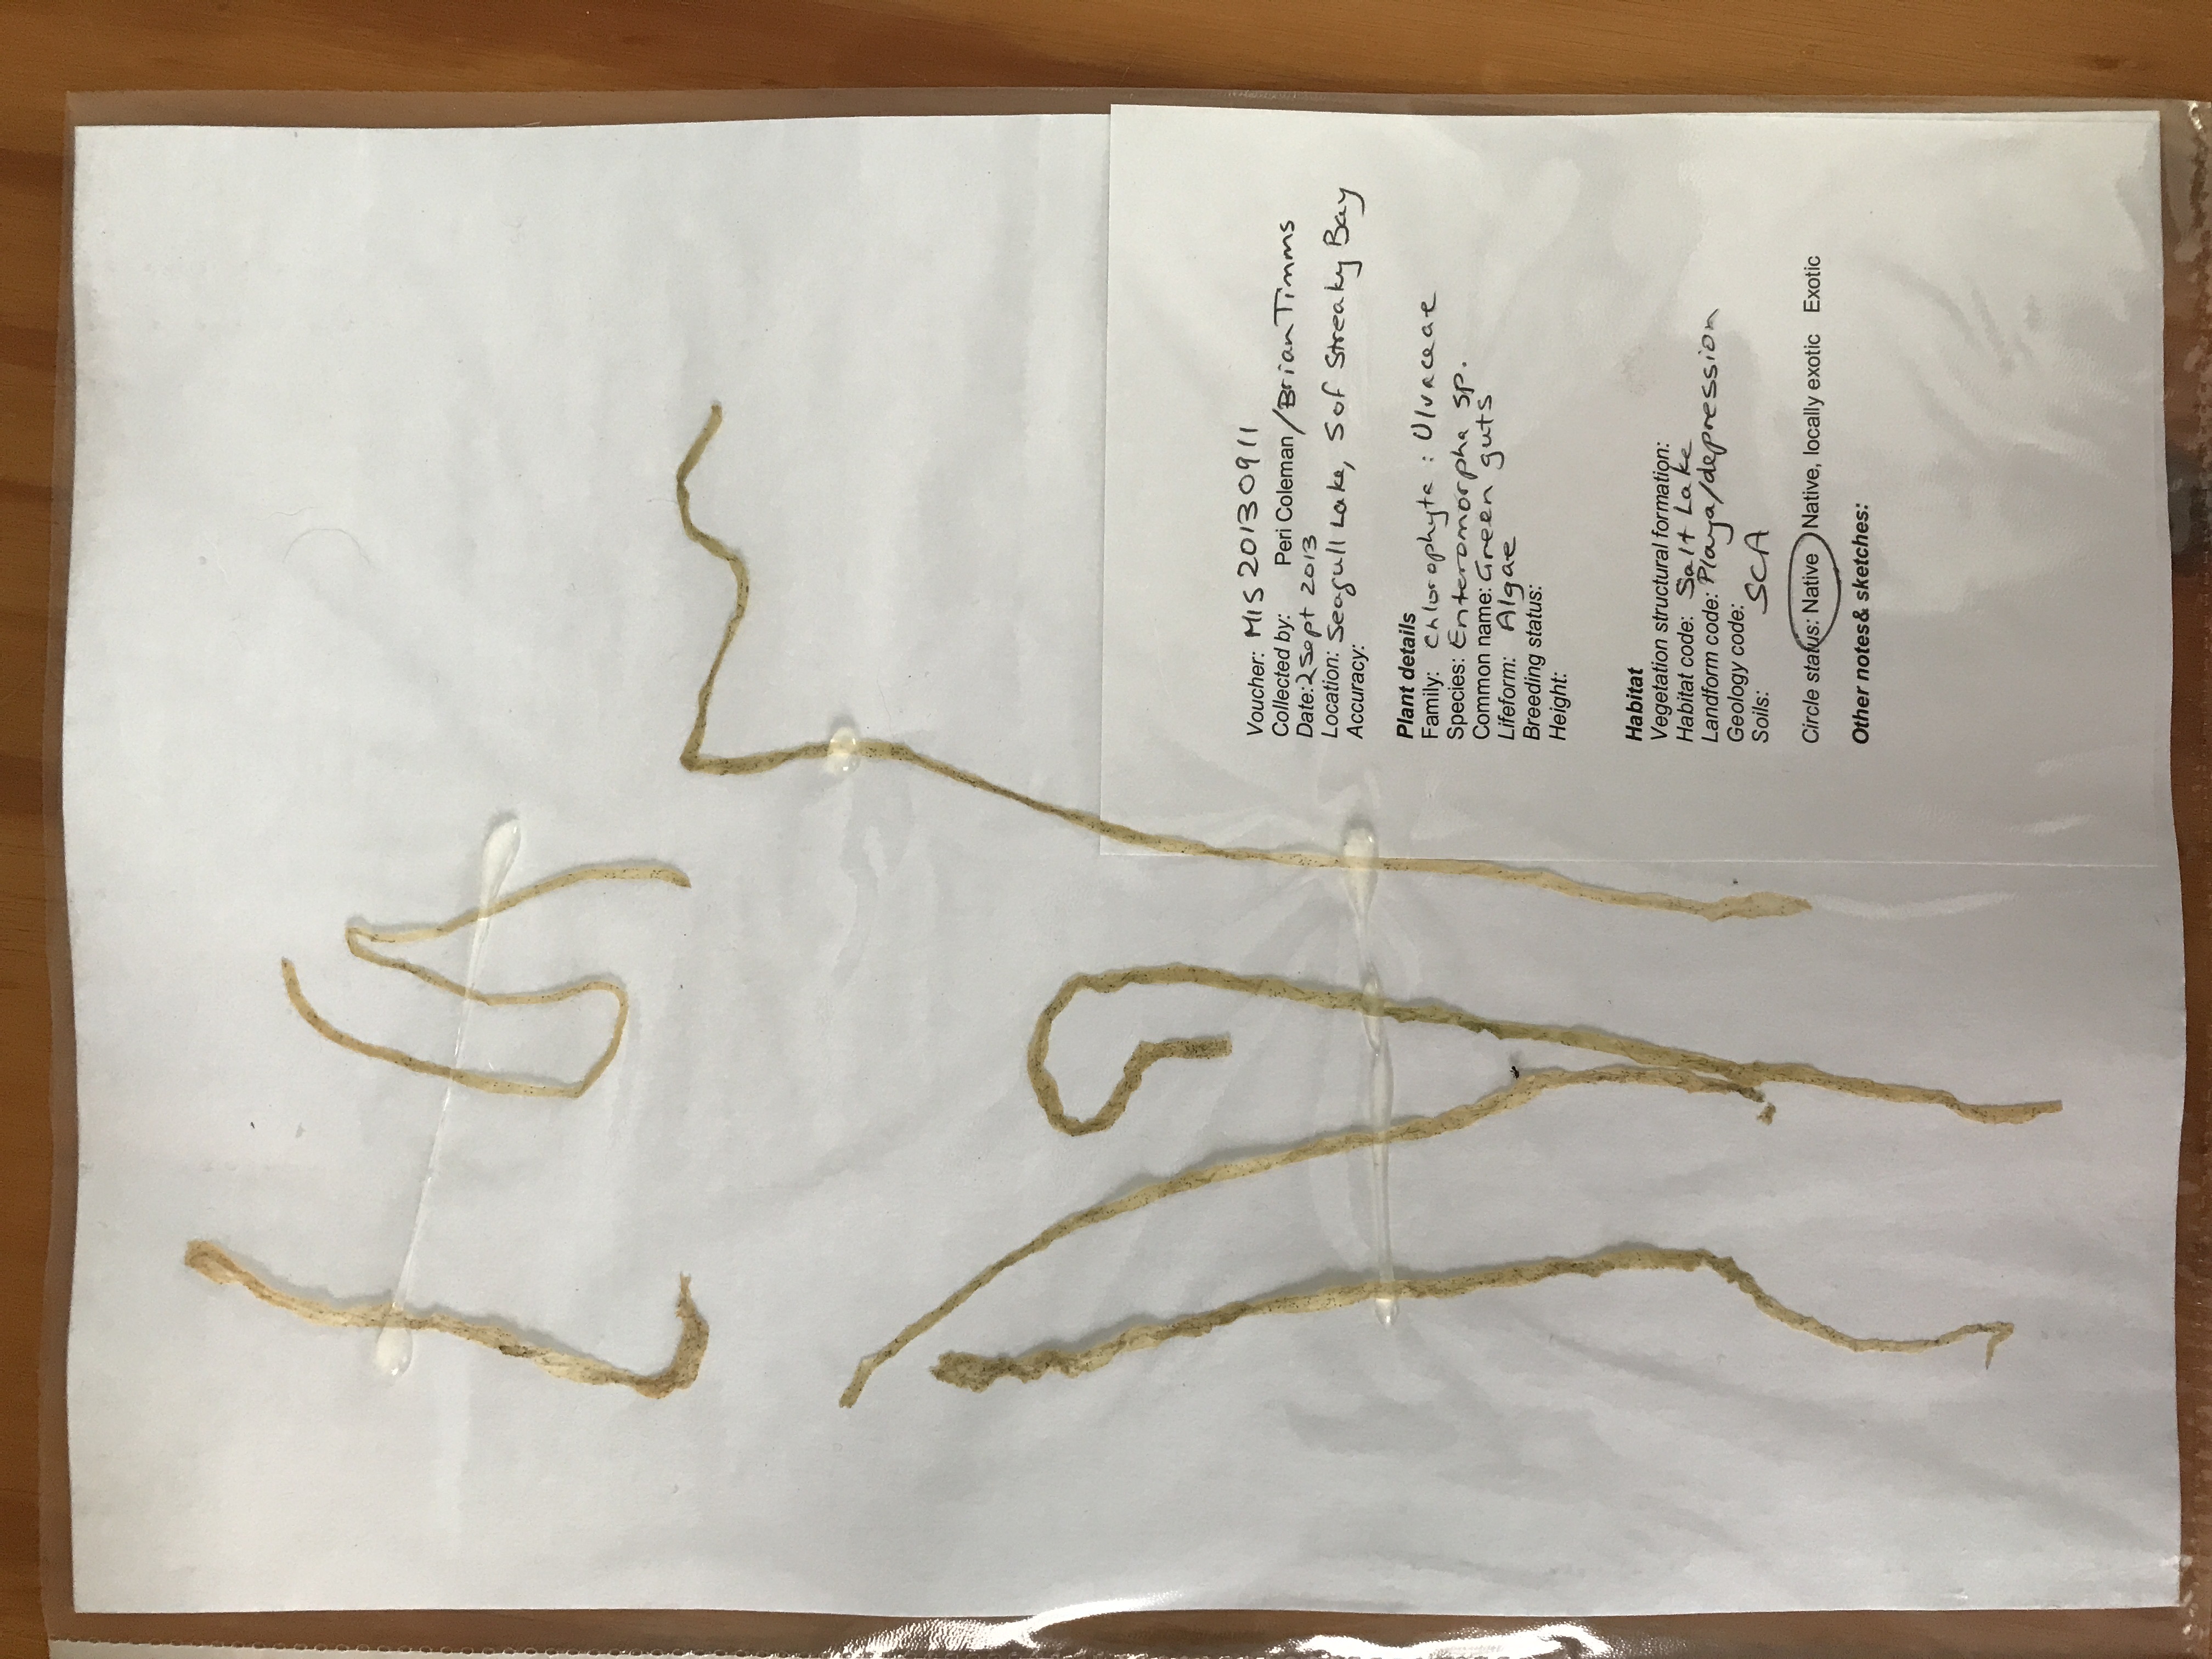 Voucher: MIS 20130911
Collected by: Peri Coleman / Brian Timms
Date: 2 Sept 2013
Location: Seagull Lake, S of Streaky Bay
Accuracy:
Plant details
Family: Chlorophyta : Ulvaceae
Species: Enteromorpha sp.
Common name: Green guts
Lifeform: Algae
Breeding status:
Height:
Habitat
Vegetation structural formation:
Habitat code: Salt Lake
Landform code: Playa/depression
Geology code:
Soils: SCA
Circle status: Native Native, locally exotic Exotic
Other notes& sketches: